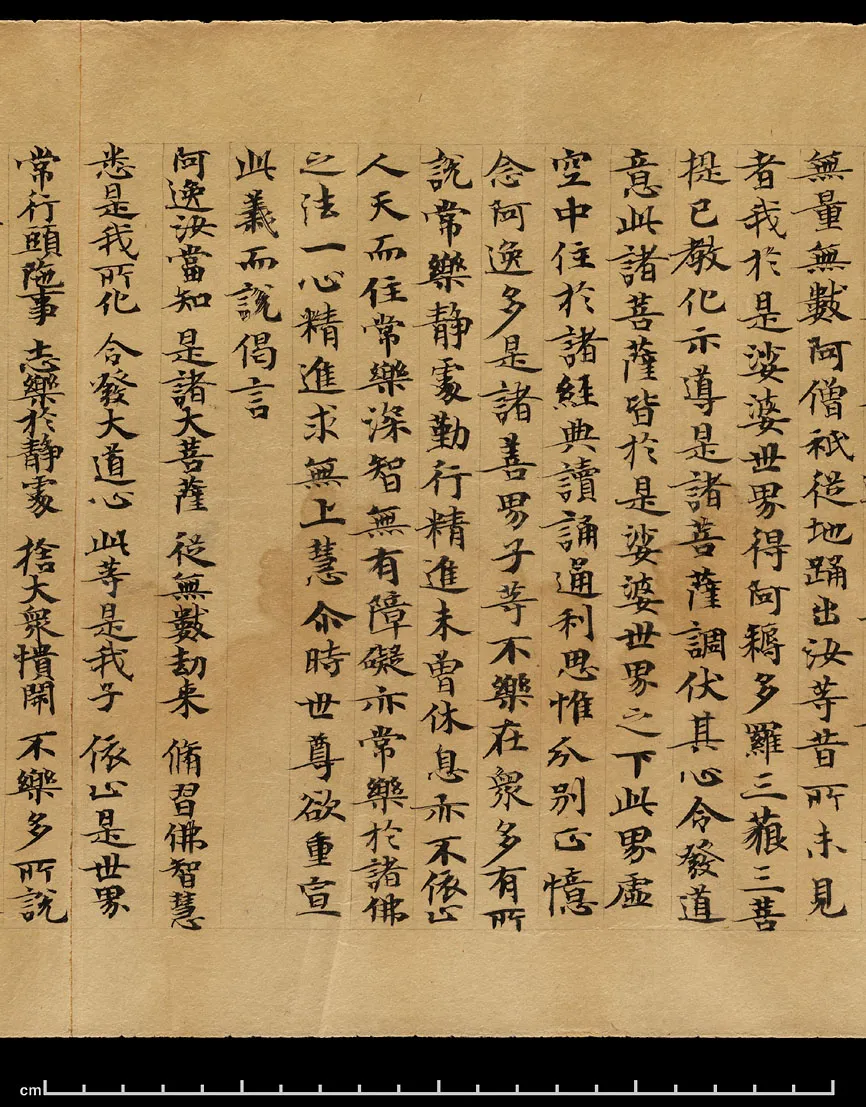 無量無數阿僧祇從地踊出汝等昔所未見
者我於是娑婆世界得阿耨多羅三藐三菩
提已教化示導是諸菩薩調伏其心令發道
意此諸菩薩皆於是娑婆世界之下此界虛
空中住於諸經典讀誦通利思惟分別正憶
念阿逸多是諸善男子等不樂在衆多有所
說常樂靜處勤行精進未曾休息亦不依止
人天而住常樂深智無有障礙亦常樂於諸佛
之法一心精進求無上慧尒時世尊欲重宣
此義而說偈言
阿逸汝當知 是諸大菩薩 從無數劫来 脩習佛智慧
悉是我所化 令發大道心 此等是我子 依止是世界
常行頭陁事 志樂於靜處 捨大衆憒閙 不樂多所說
cm